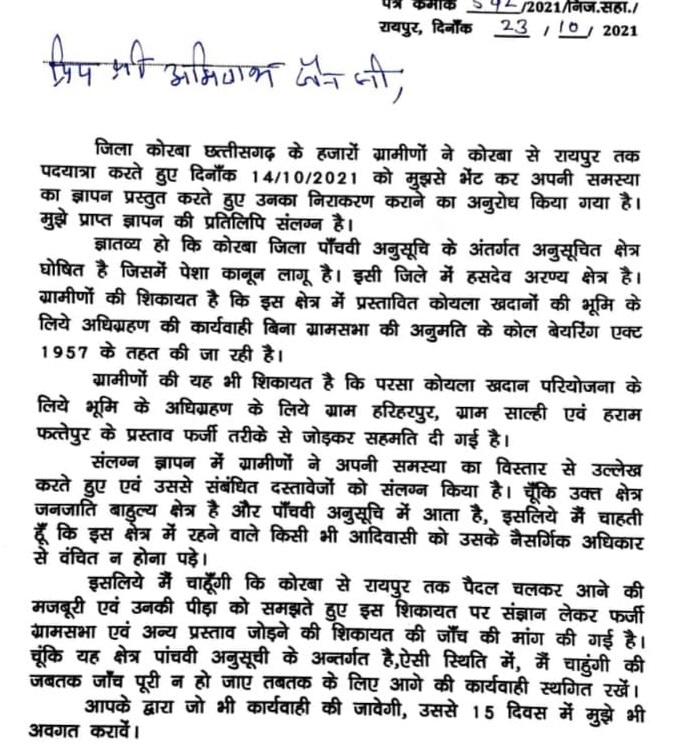 पत्र कमांक 592/2021/निज.सहा./
रायपुर, दिनाँक 23/10/2021
प्रिय श्री अमिताभ जैन जी,
जिला कोरबा छत्तीसगढ़ के हजारों ग्रामीणों ने कोरबा से रायपुर तक
पदयात्रा करते हुए दिनाँक 14/10/2021 को मुझसे भेंट कर अपनी समस्या
का ज्ञापन प्रस्तुत करते हुए उनका निराकरण कराने का अनुरोध किया गया है।
मुझे प्राप्त ज्ञापन की प्रतिलिपि संलग्न है।
ज्ञातव्य हो कि कोरबा जिला पाँचवी अनुसूचि के अंतर्गत अनुसूचित क्षेत्र
घोषित है जिसमें पेशा कानून लागू है। इसी जिले में हसदेव अरण्य क्षेत्र है।
ग्रामीणों की शिकायत है कि इस क्षेत्र में प्रस्तावित कोयला खदानों की भूमि के
लिये अधिग्रहण की कार्यवाही बिना ग्रामसभा की अनुमति के कोल बेयरिंग एक्ट
1957 के तहत की जा रही है।
ग्रामीणों की यह भी शिकायत है कि परसा कोयला खदान परियोजना के
लिये भूमि के अधिग्रहण के लिये ग्राम हरिहरपुर, ग्राम साल्ही एवं हराम
फत्तेपुर के प्रस्ताव फर्जी तरीके से जोड़कर सहमति दी गई है।
संलग्न ज्ञापन में ग्रामीणों ने अपनी समस्या का विस्तार से उल्लेख
करते हुए एवं उससे संबंधित दस्तावेजों को संलग्न किया है। चूँकि उक्त क्षेत्र
जनजाति बाहुल्य क्षेत्र है और पाँचवी अनुसूचि में आता है, इसलिये मैं चाहती
हूँ कि इस क्षेत्र में रहने वाले किसी भी आदिवासी को उसके नैसर्गिक अधिकार
से वंचित न होना पड़े।
इसलिये मैं चाहूँगी कि कोरबा से रायपुर तक पैदल चलकर आने की
मजबूरी एवं उनकी पीड़ा को समझते हुए इस शिकायत पर संज्ञान लेकर फर्जी
ग्रामसभा एवं अन्य प्रस्ताव जोड़ने की शिकायत की जाँच की मांग की गई है।
चूंकि यह क्षेत्र पांचवी अनुसूची के अन्तर्गत है,ऐसी स्थिति में, मैं चाहुंगी की
जबतक जाँच पूरी न हो जाए तबतक के लिए आगे की कार्यवाही स्थगित रखें।
आपके द्वारा जो भी कार्यवाही की जावेगी, उससे 15 दिवस में मुझे भी
अवगत करावें।